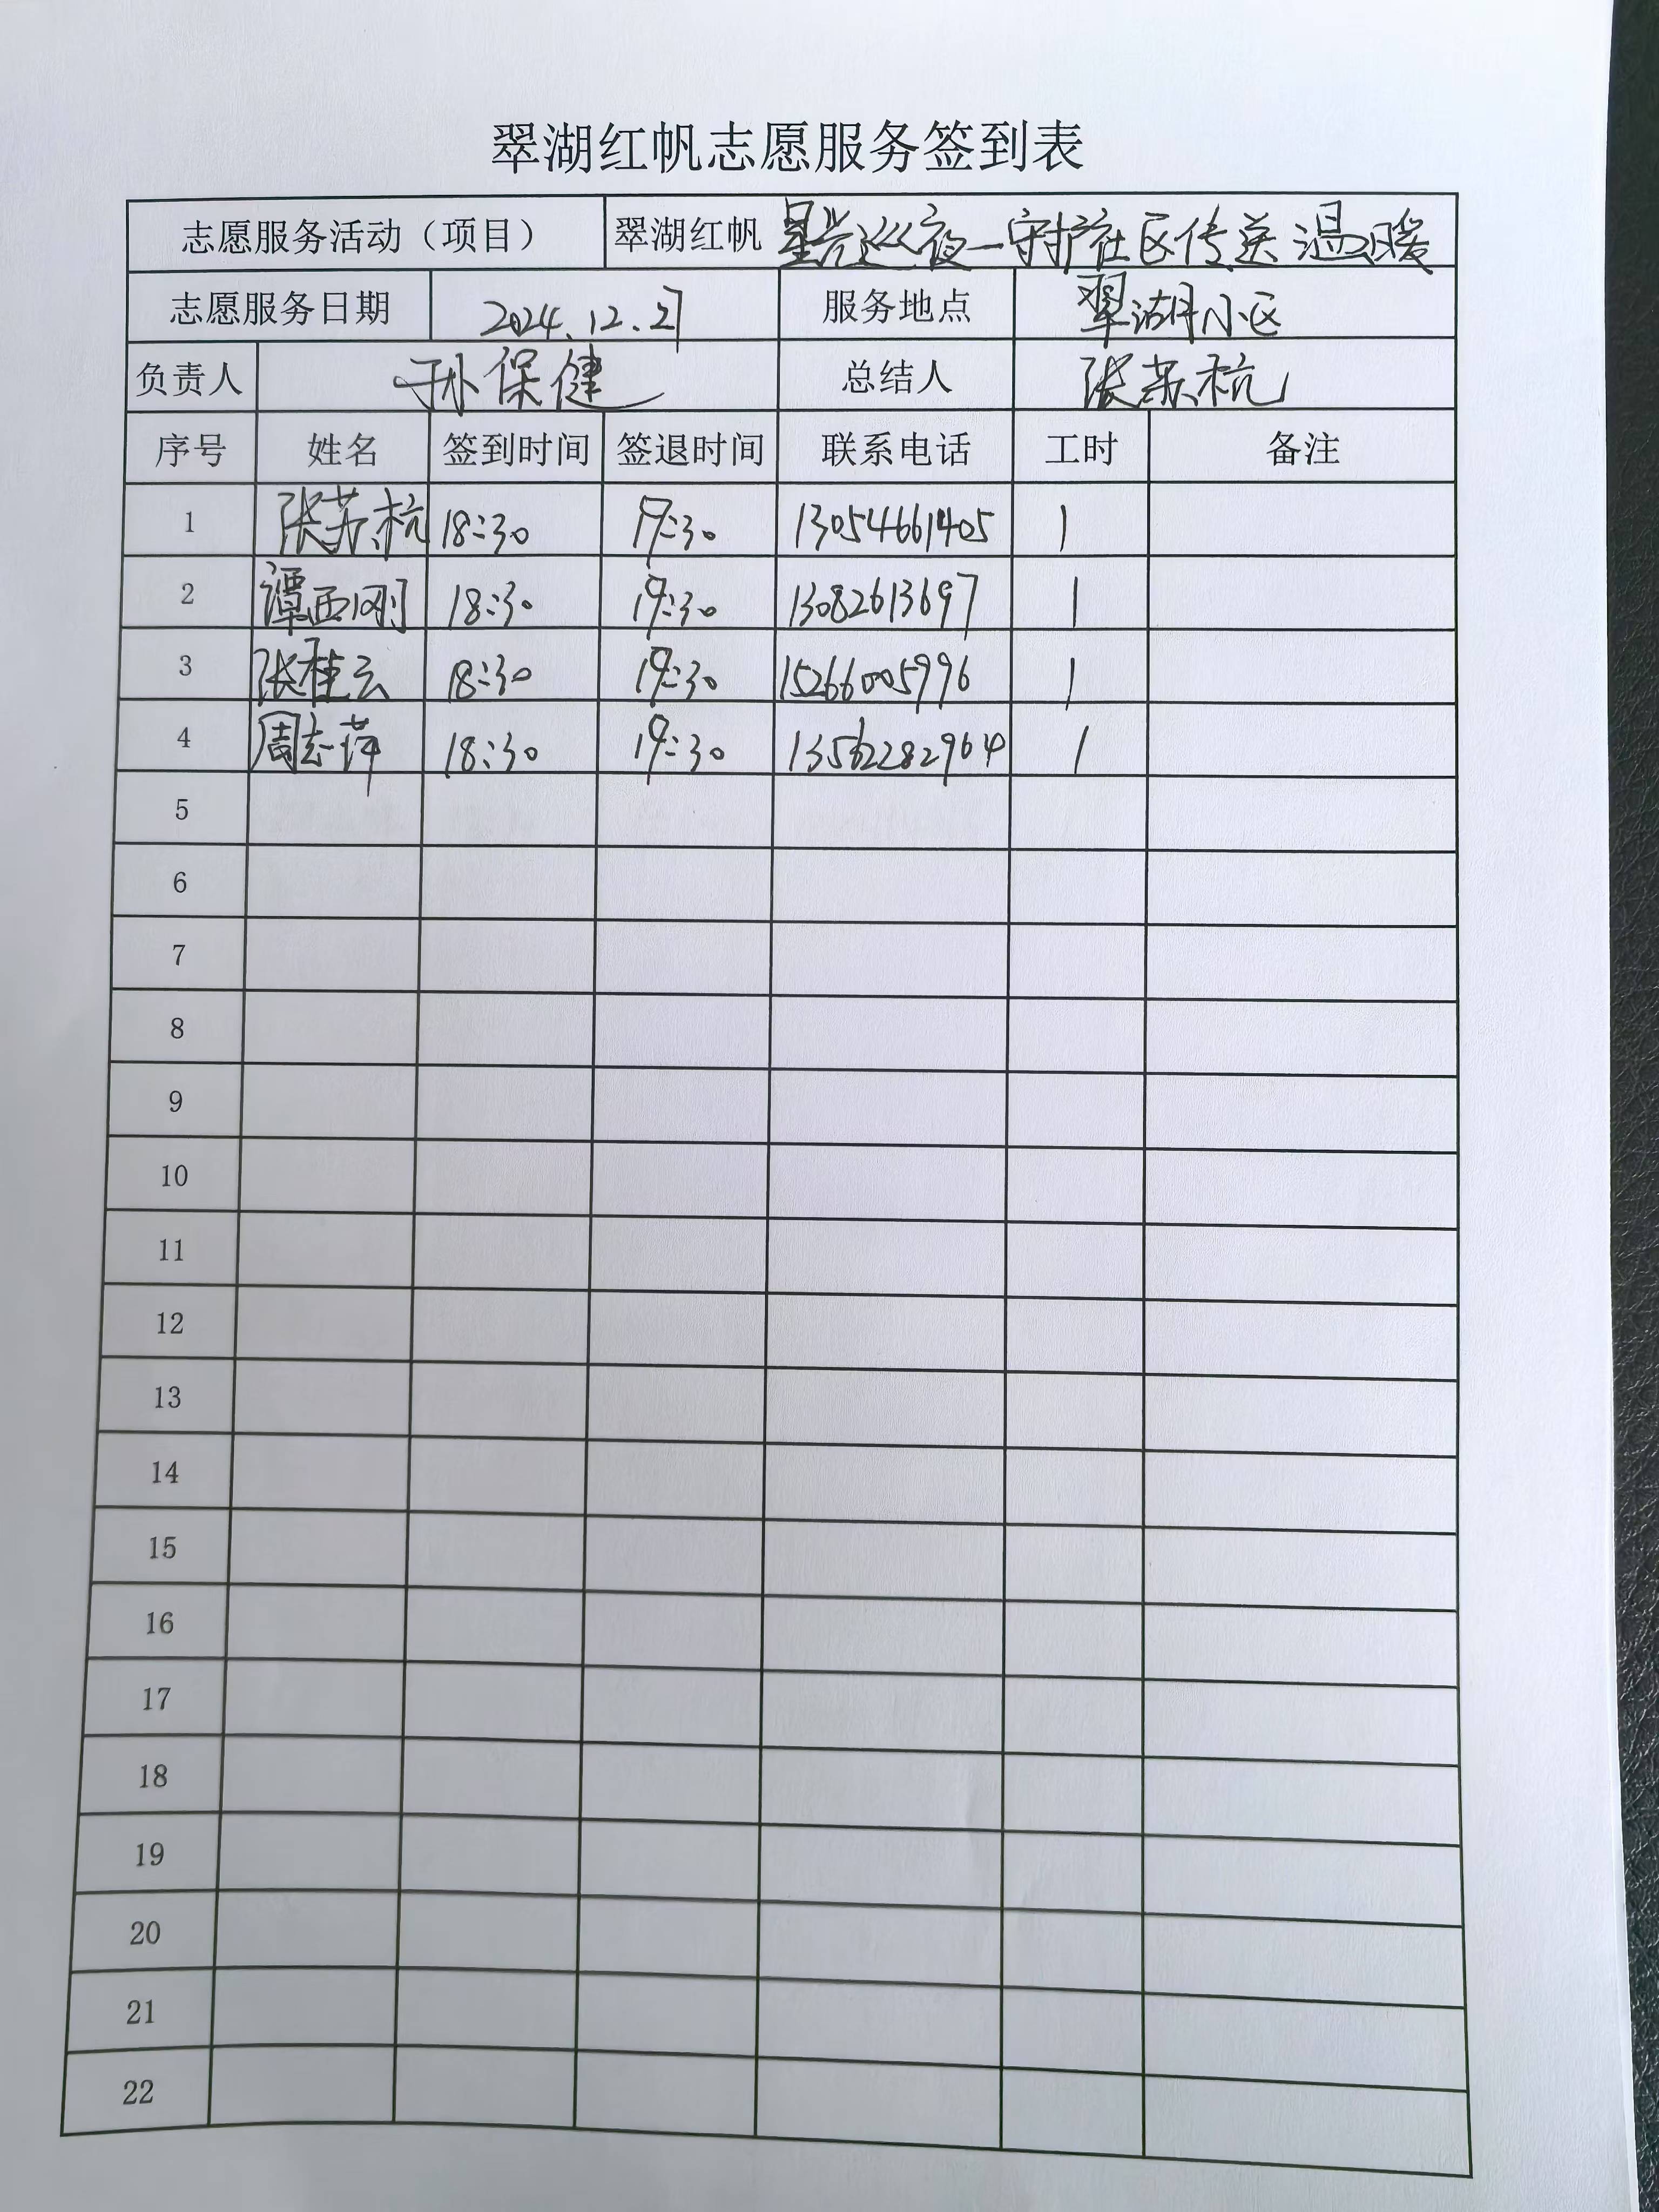 翠湖红帆志愿服务签到表
志愿服务活动（项目） 翠湖红帆 星光巡夜一守护社区传送温暖
志愿服务日期 2024.12.27 服务地点 翠湖小区
负责人 孙保健 总结人 张苏杭
序号 姓名 签到时间 签退时间 联系电话 工时 备注
1 张苏杭 18:30 19:30 13054661405 1
2 谭西刚 18:30 19:30 13082613697 1
3 张桂云 18:30 19:30 15266005996 1
4 周志萍 18:30 19:30 13562282964 1
5
6
7
8
9
10
11
12
13
14
15
16
17
18
19
20
21
22